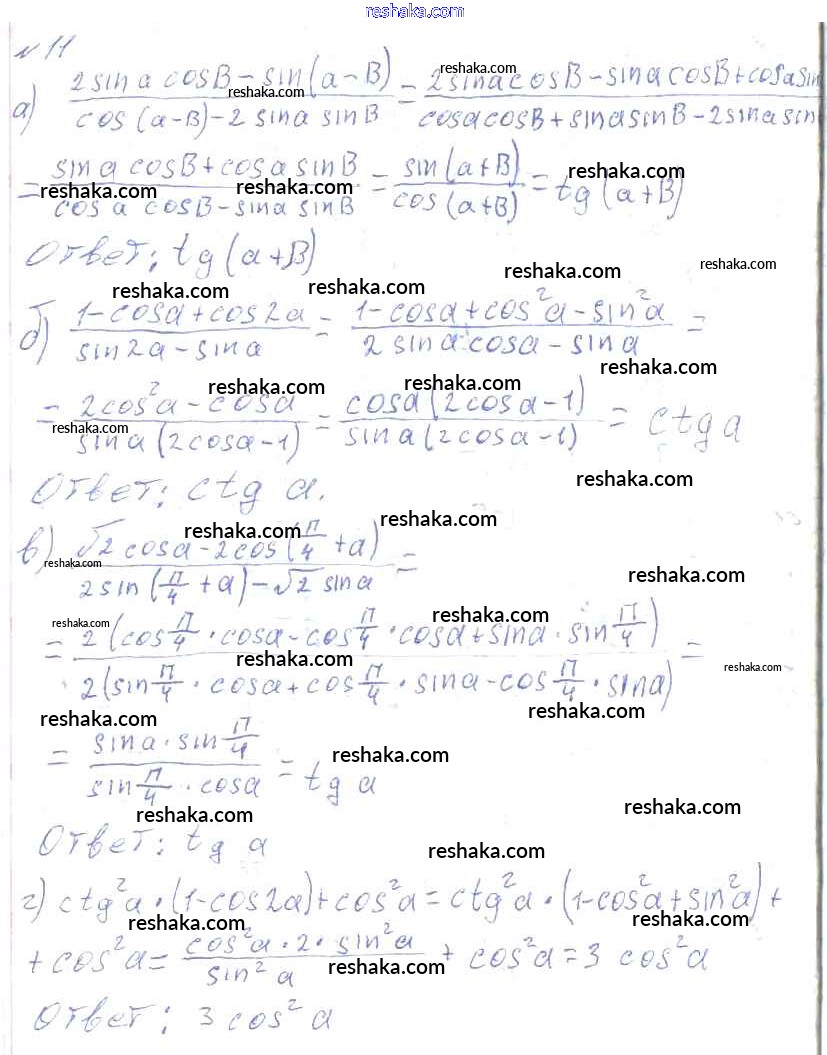 reshaka.com
№ 11
а) (2 sin a cos B − sin(a−B)) / (cos(a−B) − 2 sin a sin B) = (2 sin a cos B − sin a cos B + cos a sin / (cos a cos B + sin a sin B − 2 sin a sin
= (sin a cos B + cos a sin B) / (cos a cos B − sin a sin B) = sin(a+B) / cos(a+B) = tg(a+B)
Ответ: tg(a+B)
б) (1−cos a + cos 2a) / (sin 2a − sin a) = (1−cos a + cos² a − sin² a) / (2 sin a cos a − sin a) =
= (2cos² a − cos a) / (sin a (2cos a −1)) = (cos a (2cos a −1)) / (sin a (2cos a −1)) = ctg a
Ответ: ctg a.
в) (√2 cos a − 2cos(π/4 + a)) / (2 sin(π/4 + a) − √2 sin a) =
= (2(cos π/4 · cos a − cos π/4 · cos a + sin a · sin π/4)) / (2(sin π/4 · cos a + cos π/4 · sin a − cos π/4 · sin a)) =
= (sin a · sin π/4) / (sin π/4 · cos a) = tg a
Ответ: tg a
г) ctg² a · (1−cos 2a) + cos² a = ctg² a · (1−cos² a + sin² a) +
+ cos² a = (cos² a · 2 · sin² a) / (sin² a) + cos² a = 3 cos² a
Ответ: 3 cos² a